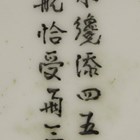 水纔添四五
航恰受兩三